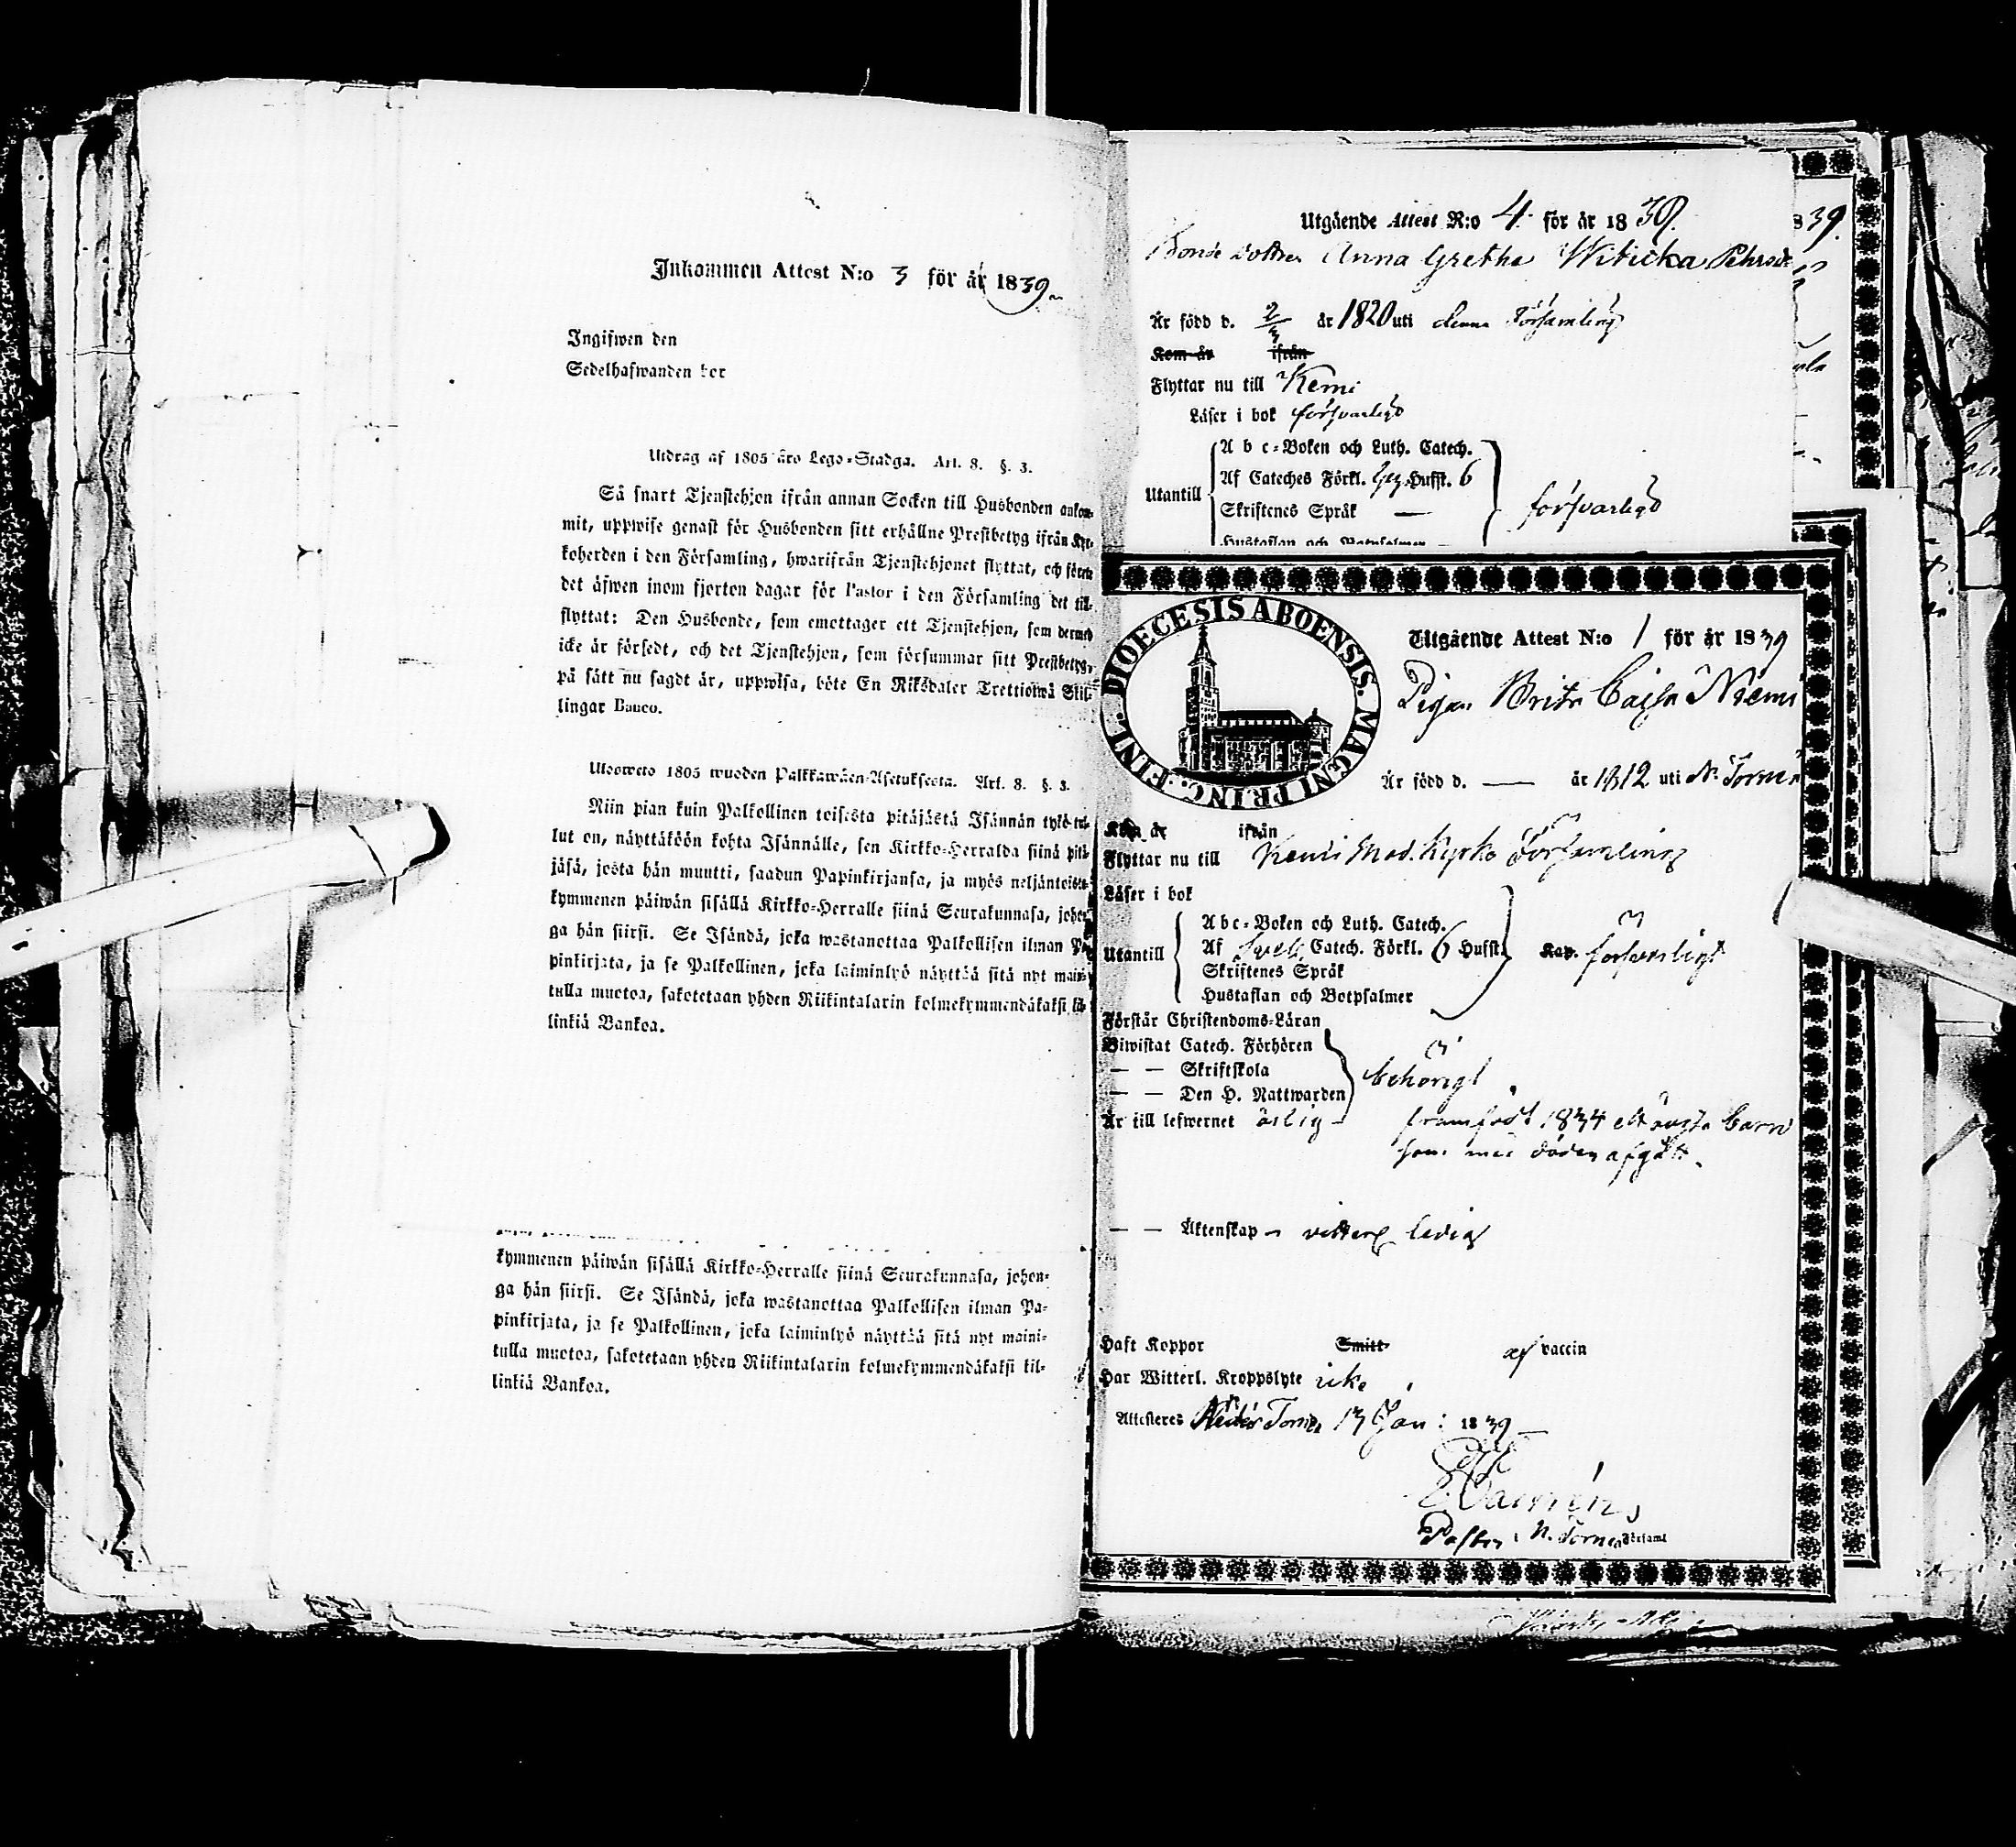 Inkommen Attest N:o 3 för år 1839
Ingifwen den
Sedelhafwanden bor
Utdrag af 1805 års Lego-Stadga. Art. 8. §. 3.
Så snart Tjenstehjon ifrån annan Socken till Husbonden ankom-
mit, uppwise genast för Husbonden sitt erhållne Prestbetyg ifrån Kyr-
koherden i den Församling, hwarifrån Tjenstehjonet flyttat, och förete
det äfwen inom fjorton dagar för Pastor i den Församling det till-
flyttat: Den Husbonde, som emottager ett Tjenstehjon, som dermed
icke är försedt, och det Tjenstehjon, som försummar sitt Prestbetyg,
på sätt nu sagdt är, uppwisa, böte En Riksdaler Trettiotwå Skil-
lingar Banco.
Ulosweto 1805 wuoden Palkkawäen-Asetuksesta. Art. 8. §. 3.
Niin pian kuin Palkollinen toisesta pitäjästä Isännän tykö tul-
lut on, näyttäköön kohta Isännälle, sen Kirkko-Herralda siinä pitä-
jäsä, josta hän muutti, saadun Papinkirjansa, ja myös neljäntoista-
kymmenen päiwän sisällä Kirkko-Herralle siinä Seurakunnasa, johon-
ga hän siirsi. Se Isändä, joka wastanottaa Palkollisen ilman Pa-
pinkirjata, ja se Palkollinen, joka laiminlyö näyttää sitä nyt maini-
tulla muotoa, sakotetaan yhden Riikintalarin kolmekymmendäkaksi kil-
linkiä Bankoa.
kymmenen päiwän sisällä Kirkko-Herralle siinä Seurakunnasa, johon-
ga hän siirsi. Se Isändä, joka wastanottaa Palkollisen ilman Pa-
pinkirjata, ja se Palkollinen, joka laiminlyö näyttää sitä nyt maini-
tulla muotoa, sakotetaan yhden Riikintalarin kolmekymmendäkaksi kil-
linkiä Bankoa.
Utgående Attest N:o 4 för år 1839.
839.
Bonde dottren Anna Gretha Witicka Pehrsdr
Är född d. 2/3 år 1820 uti denna Församling
Kom år ifrån
Flyttar nu till Kemi
Läser i bok försvarligt
Utantill
A b c-Boken och Luth. Catech.
Af Cateches Förkl. Hufst. 6
Skriftenes Språk —
försvarligt
Hustaflan och Botpsalmer
DIOECESIS ABOENSIS. MAGNI PRINC. FINL.
Utgående Attest N:o 1 för år 1839
Pigan Brita Cajsa Niemi
Är född d. — år 1812 uti N. Torneå
Kom år ifrån
Flyttar nu till Kemi Mod. Kyrko Församling
Läser i bok
Utantill
Abc-Boken och Luth. Catech.
Af Sveb. Catech. Förkl. 6 Hufst.
Kap. försvarligt
Skriftenes Språk
Hustaflan och Botpsalmer
Förstår Christendoms-Läran
Biwistat Catech. Förhören
— — Skriftskola
behörigt
— — Den H. Nattwarden
Är till lefwernet ärlig — framfödt 1834 ett oägta barn
som med döden afgått.
— — Äktenskap — vitterl. ledig
Haft Koppor Smitt af vaccin
Har Witterl. Kroppslyte icke
Attesteras Neder Torneå 13 Jan: 1839
Pastor i N. Torneå Församl